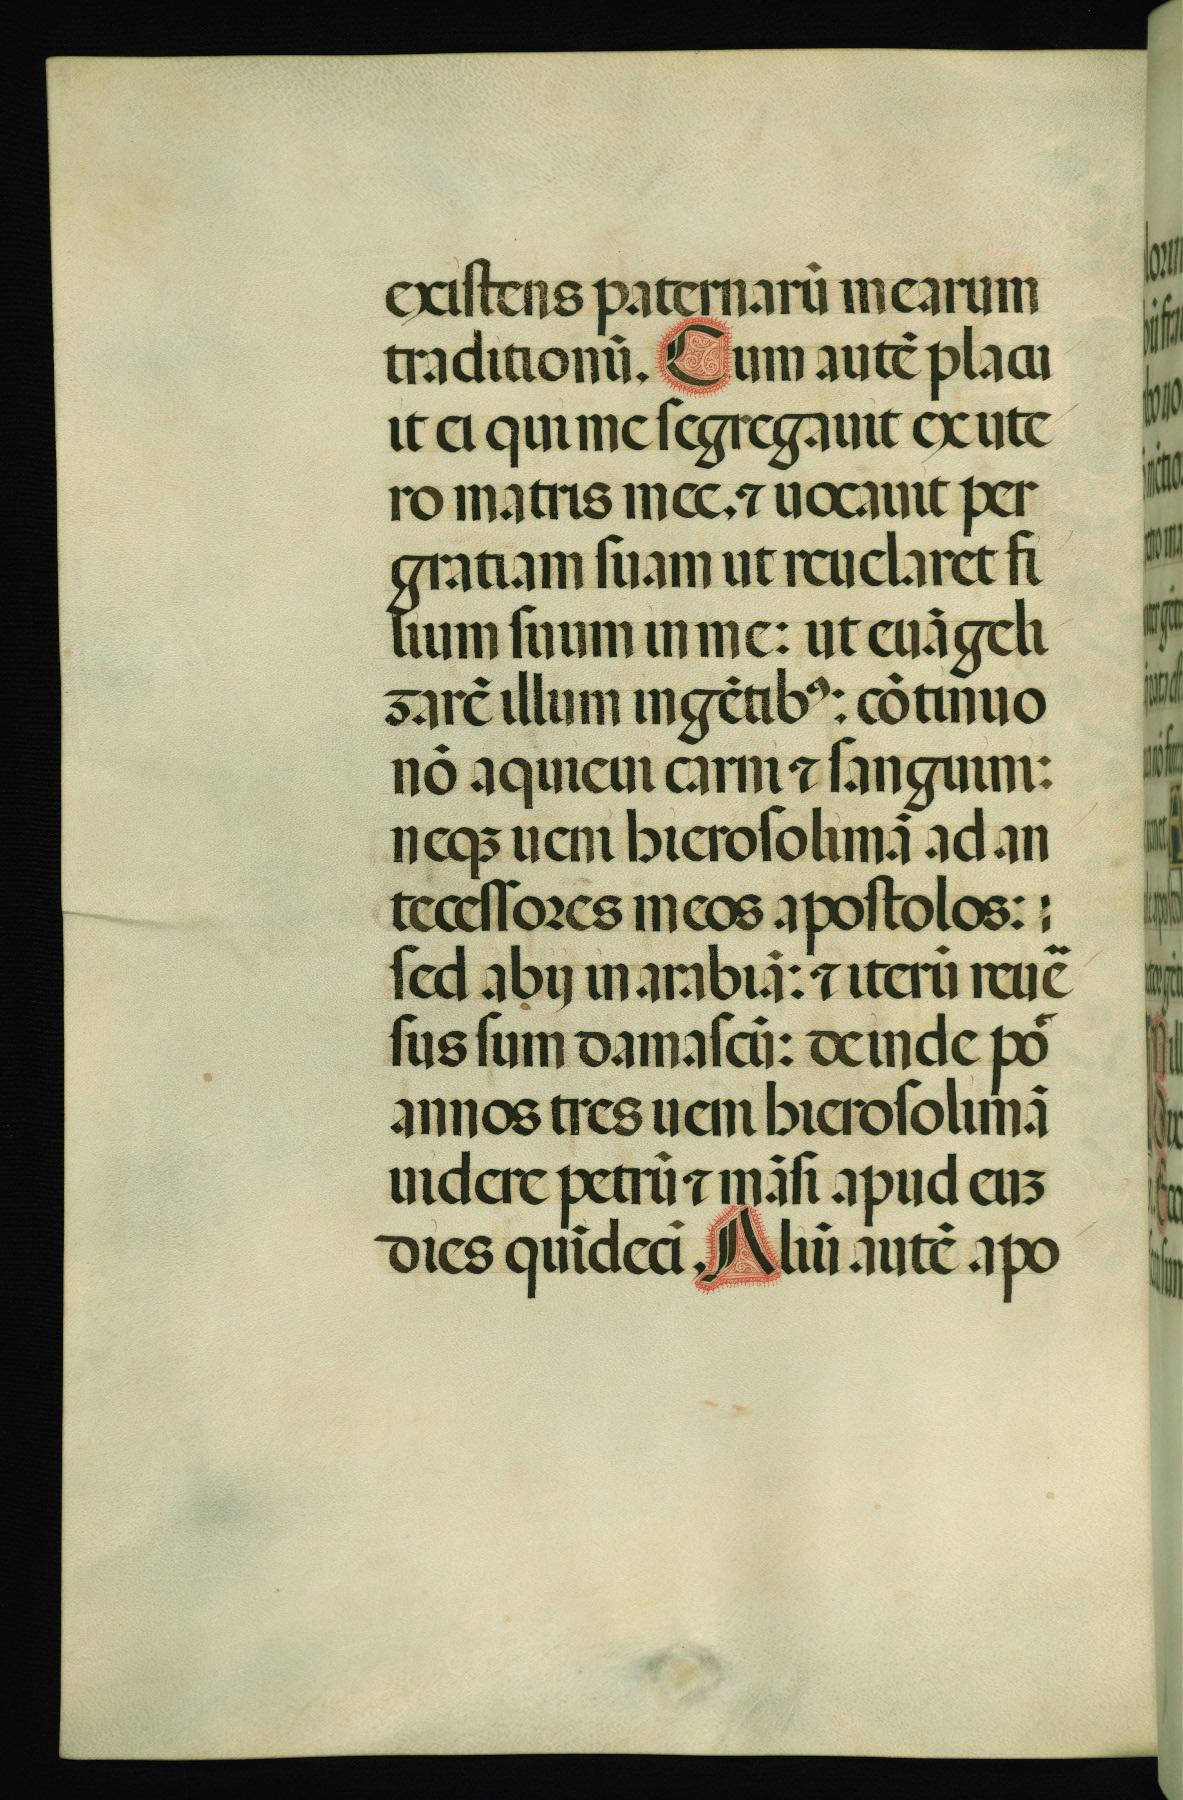 existens paternarū mearum
traditionū. Cum autē placu
it ei qui me segregauit ex ute
ro matris mee. ⁊ uocauit per
gratiam suam ut reuelaret fi
lium suum in me: ut euāgeli
zarē illum in gētibꝰ: cōtinuo
nō aquieui carni ⁊ sanguini:
neqꝫ ueni hierosolimā ad an
tecessores meos apostolos:
sed abij in arabiā: ⁊ iterū reuē
sus sum damascū: deinde pō
annos tres ueni hierosolimā
uidere petrū ⁊ māsi apud euꝫ
dies quīdeci. Aliū autē apo